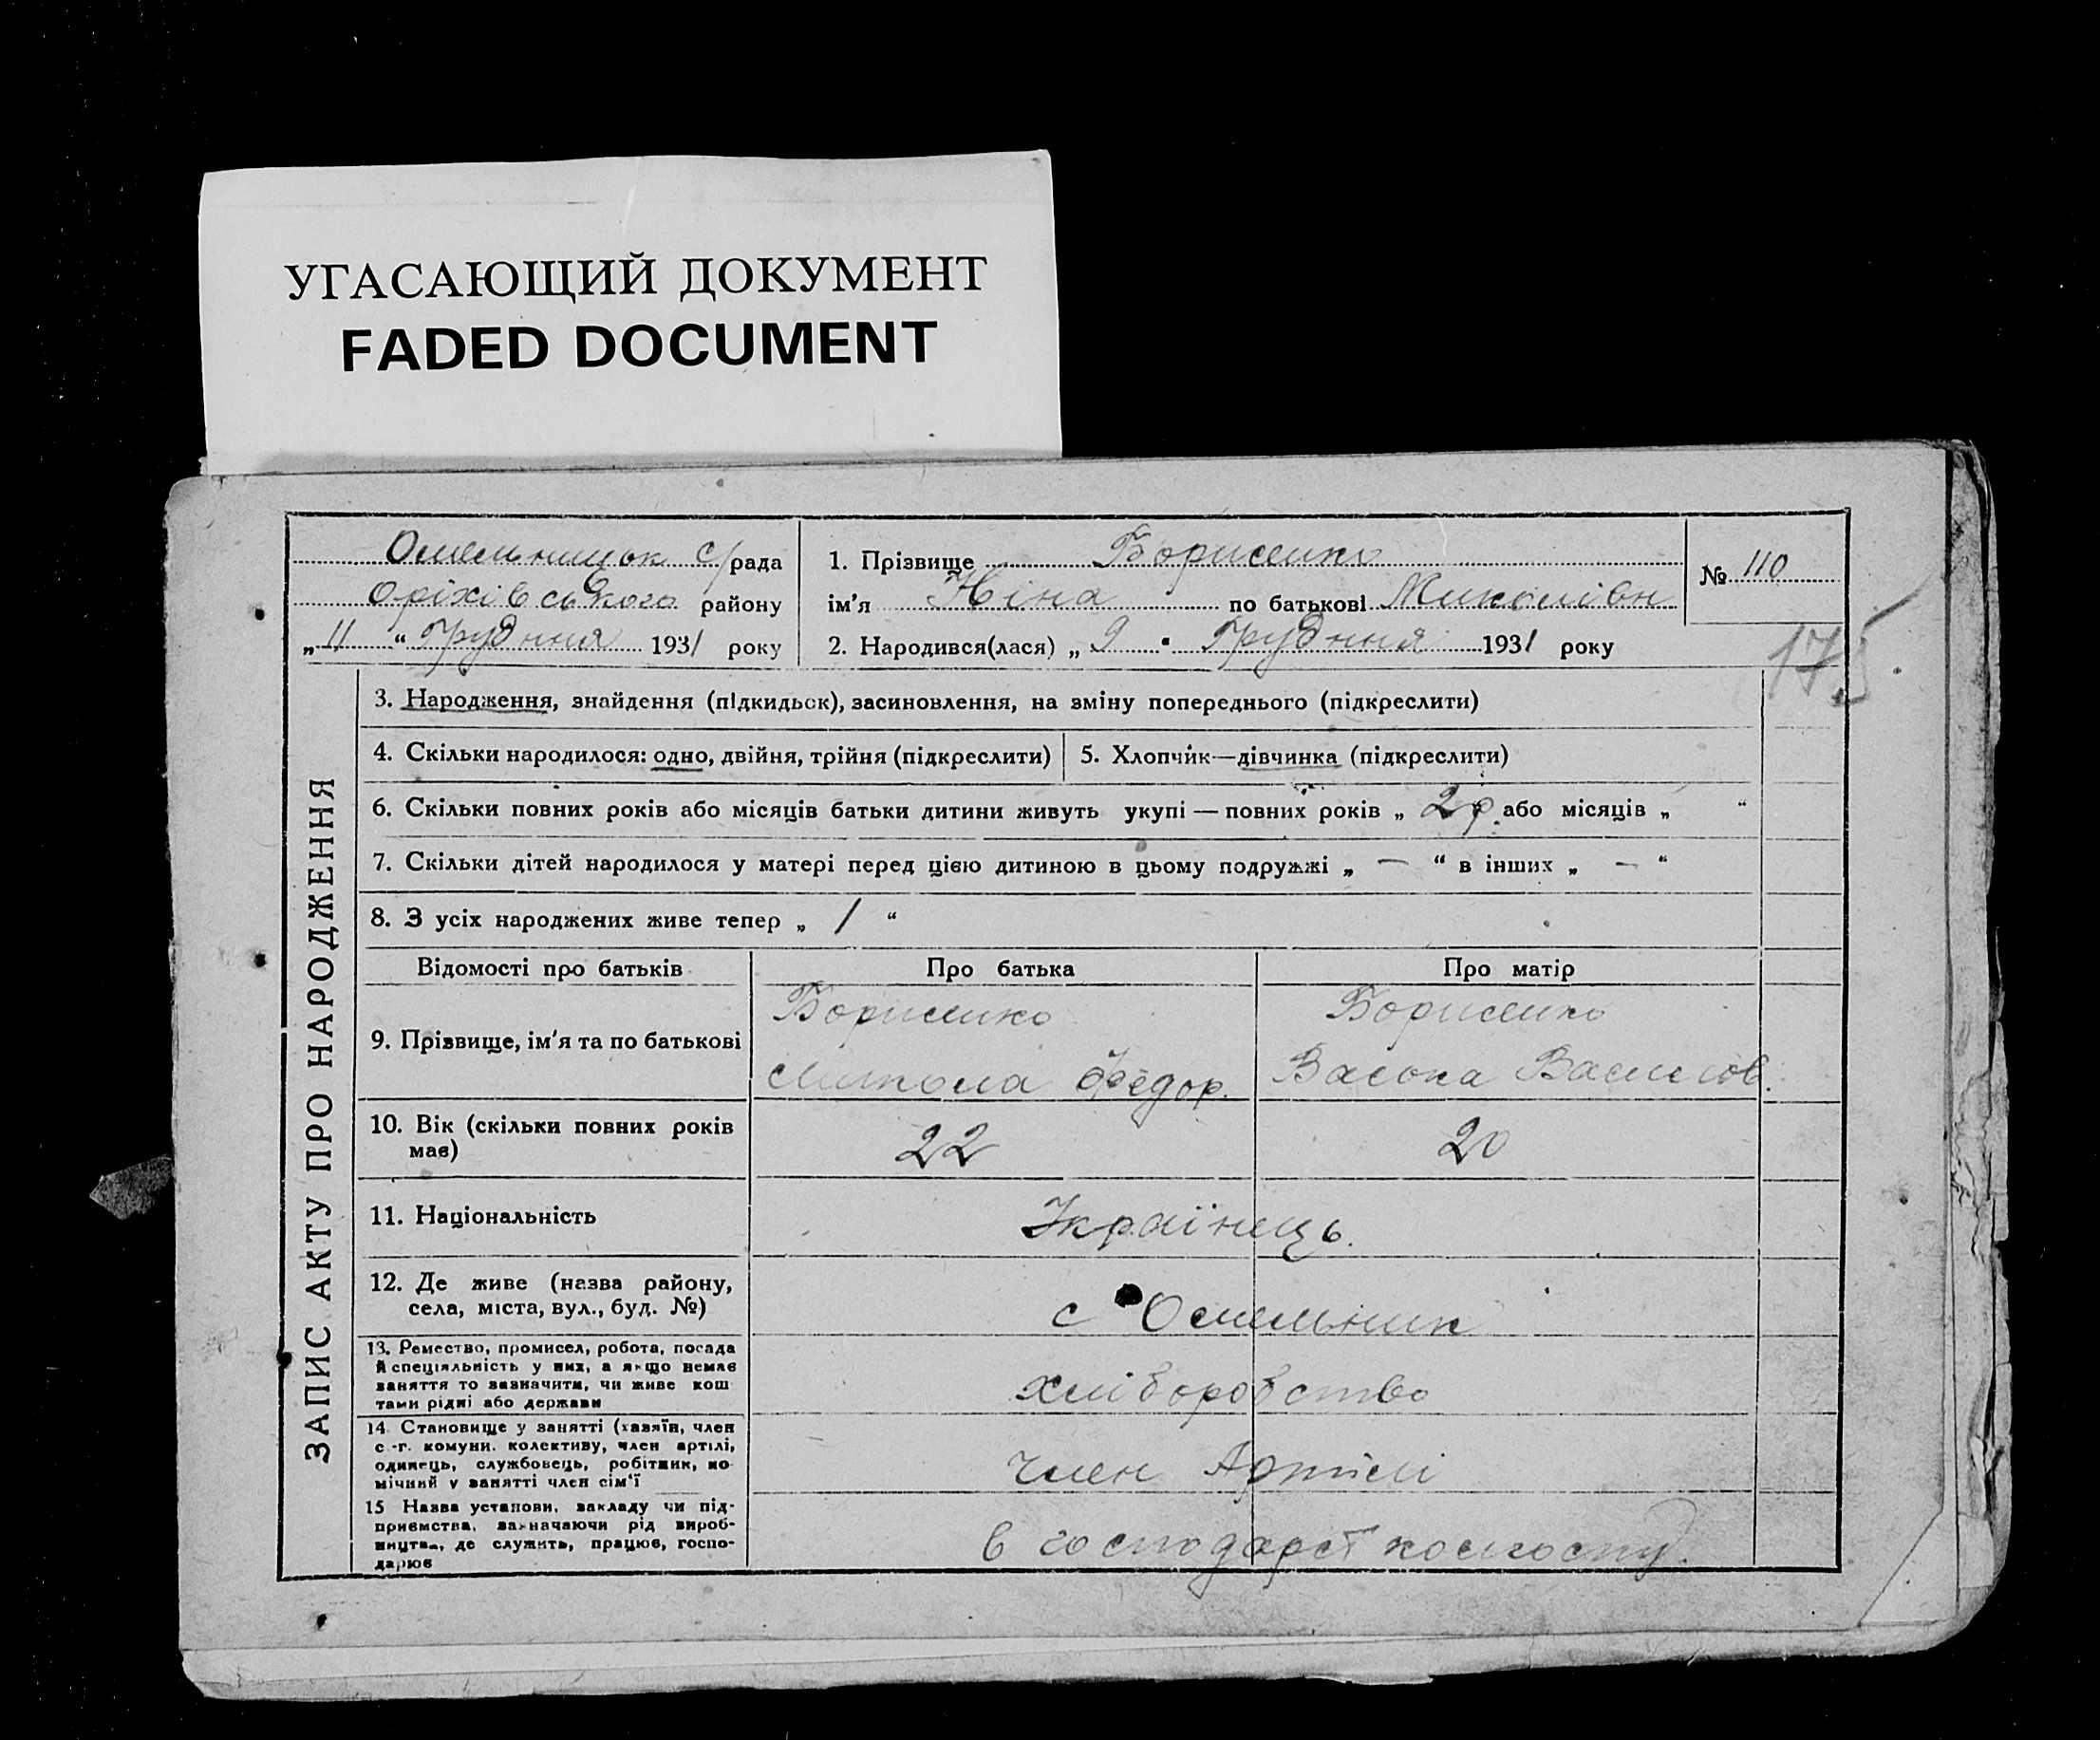 УГАСАЮЩИЙ ДОКУМЕНТ
FADED DOCUMENT
Омельницьк с/рада
Оріхівського району
„11“ Грудння 1931 року
1. Прізвище Борисенко
ім'я Ніна по батькові Миколівн
2. Народився(лася) „9 Грудння 1931 року
№ 110
175
ЗАПИС АКТУ ПРО НАРОДЖЕННЯ
3. Народження, знайдення (підкидьок), засиновлення, на зміну попереднього (підкреслити)
4. Скільки народилося: одно, двійня, трійня (підкреслити)
5. Хлопчик—дівчинка (підкреслити)
6. Скільки повних років або місяців батьки дитини живуть укупі — повних років „ 2 р. або місяців „ “
7. Скільки дітей народилося у матері перед цією дитиною в цьому подружжі „ — “ в інших „ — “
8. З усіх народжених живе тепер „ 1 “
Відомості про батьків Про батька Про матір
9. Прізвище, ім'я та по батькові
Борисенко
Микола Федор.
Борисенко
Василов.
10. Вік (скільки повних років
має)
22
20
11. Національність
Українець.
12. Де живе (назва району,
села, міста, вул., буд. №)
с Омельник
13. Ремество, промисел, робота, посада
й спеціяльність у них, а якщо немає
заняття то зазначити, чи живе кош
тами рідні або держави
хліборобство
14. Становище у занятті (хазяїн, член
с.-г. комуни. колективу, член артілі,
одинець, службовець, робітник, по
мічний у занятті член сім'ї
Член Артілі
15 Назва установи, закладу чи під-
приємства, зазначаючи рід вироб-
ництва, де служить, працює, госпо-
дарює
в господарст колгоспу.